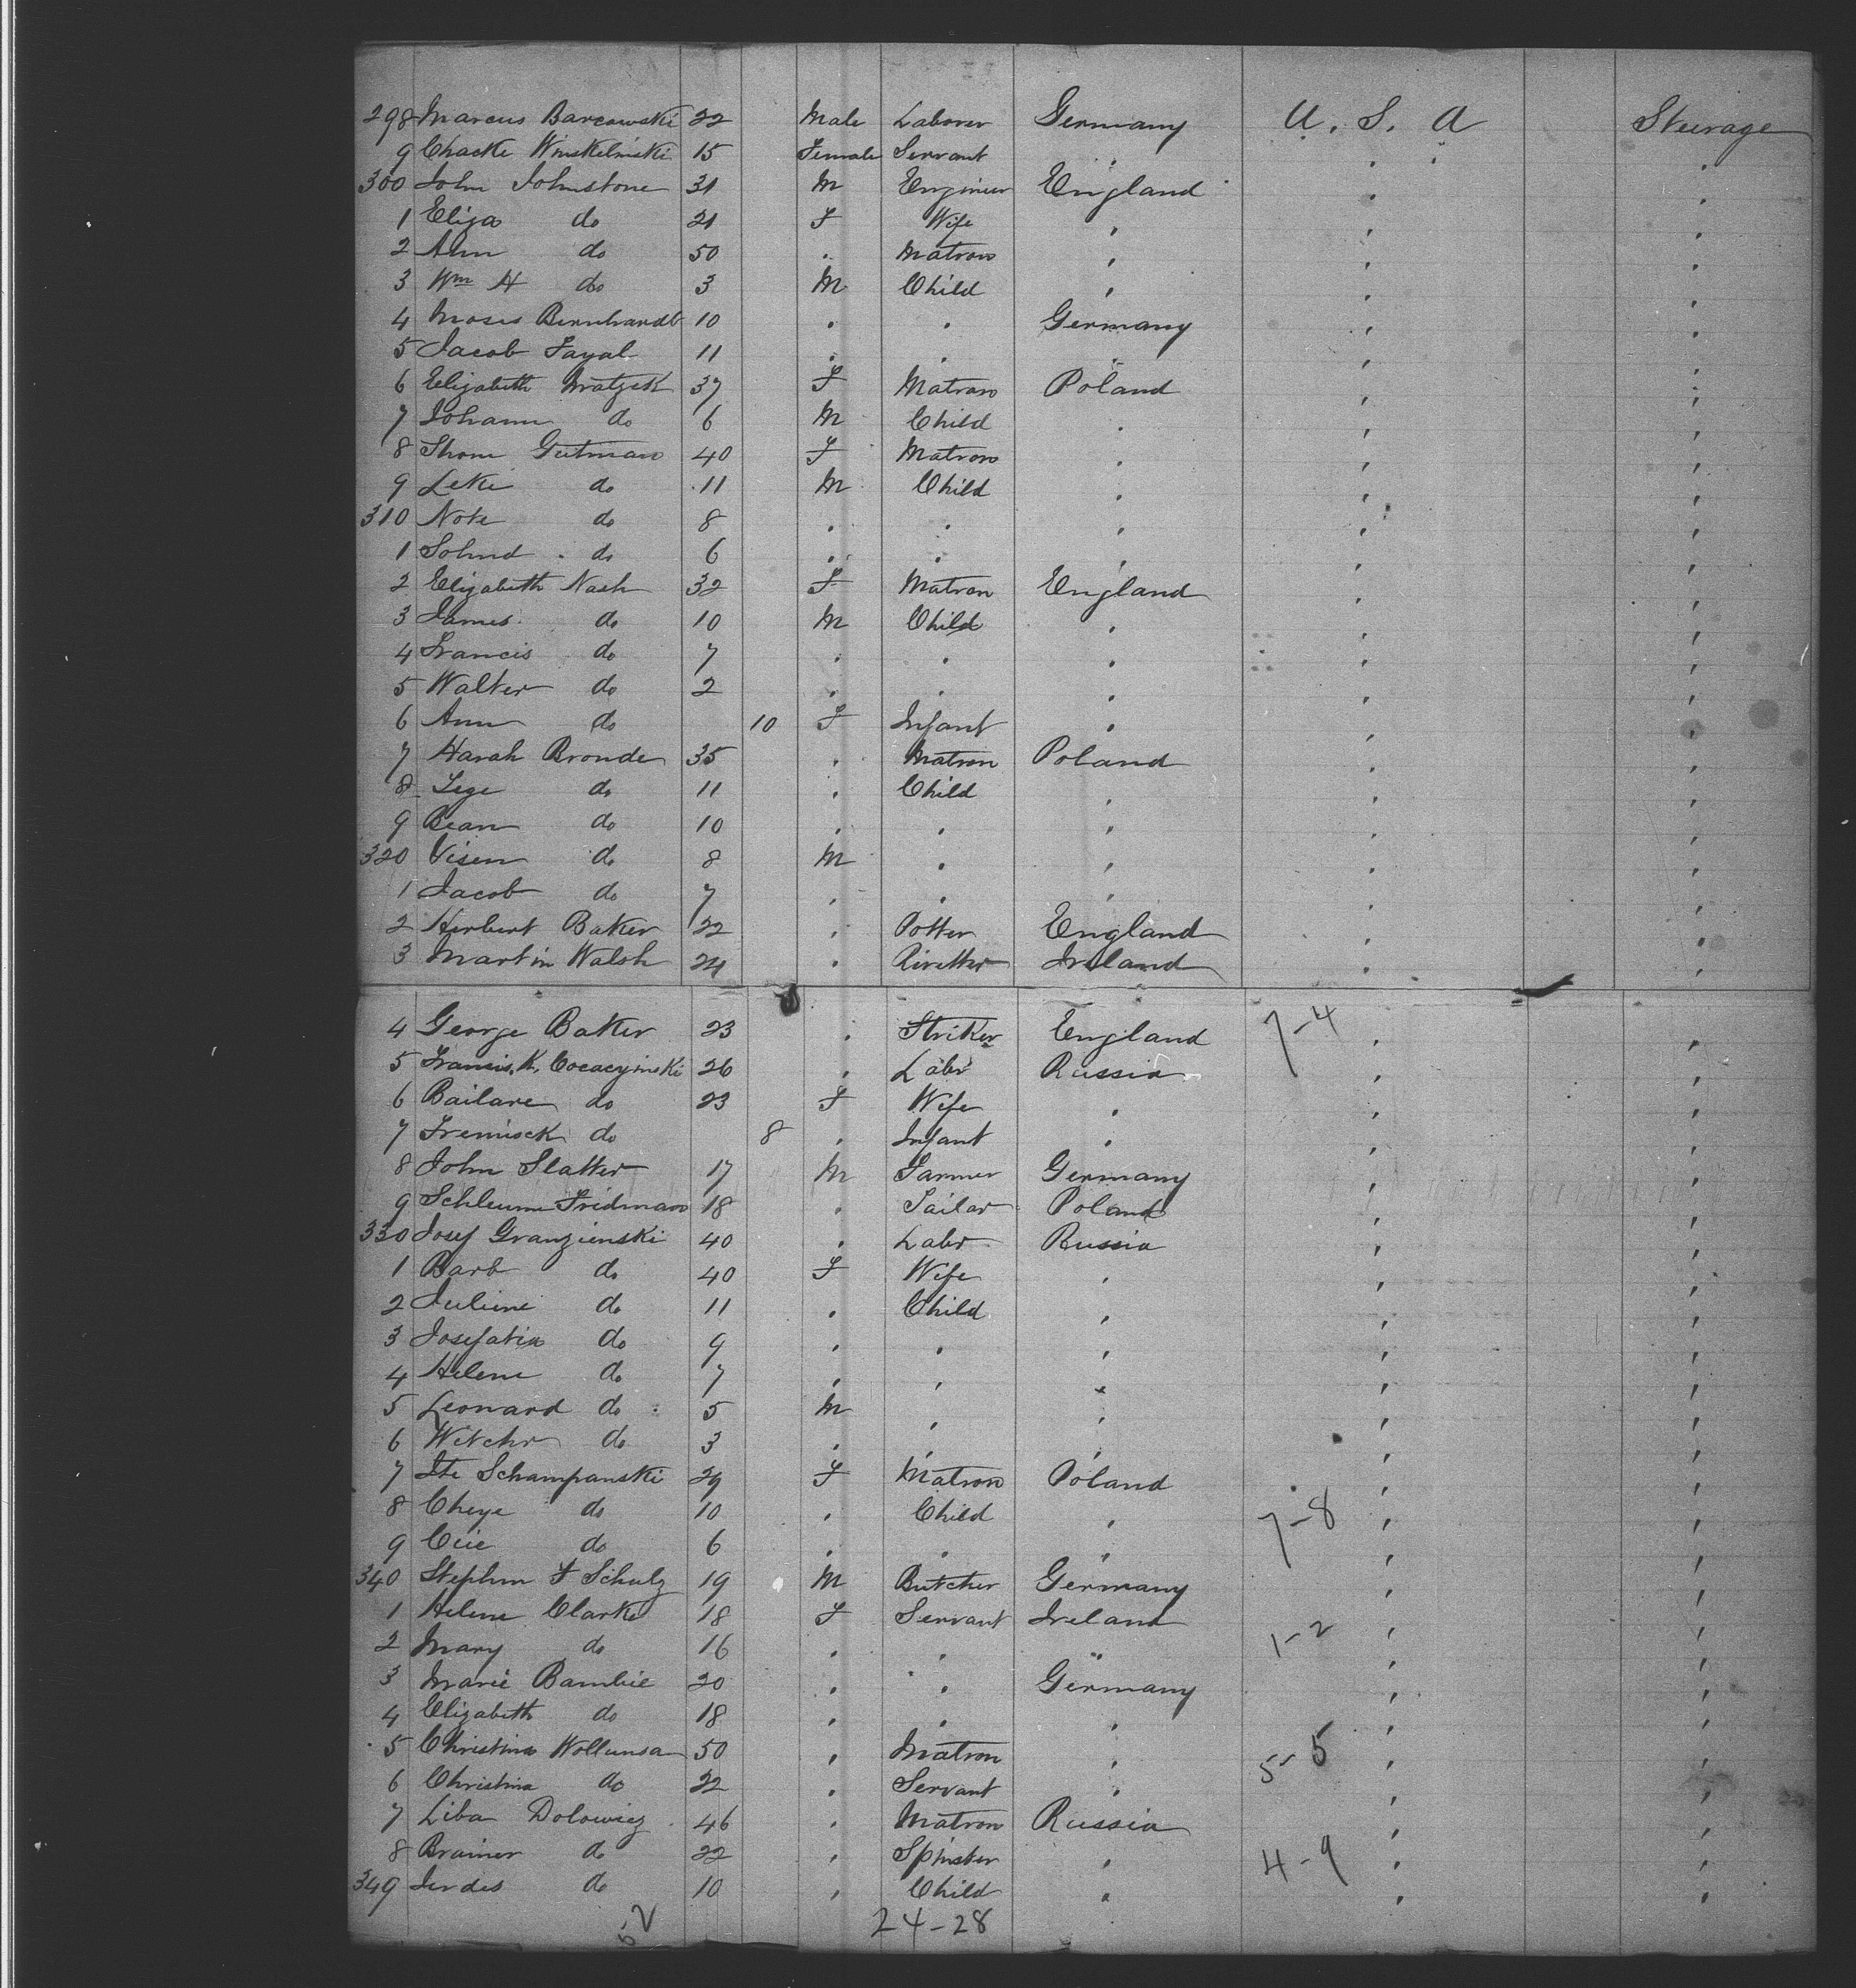 298 Marcus Barcowski 22 Male Laborer Germany U. S. A Steerage
9 Chacke 15 Female Servant " " "
300 John Johnstone 31 M Engineer England " "
1 Eliza do 21 F Wife " " "
2 Ann do 50 " Matron " " "
3 Wm H do 3 M Child " " "
4 Moses Bernhardt 10 " " Germany " "
5 Jacob Fayal 11 " " " " "
6 Elizabeth Mratzek 37 F Matron Poland " "
7 Johann do 6 M Child " " "
8 Thom Gutman 40 F Matron " " "
9 Leke do 11 M Child " " "
310 Note do 8 " " " " "
1 Solmd do 6 " " " " "
2 Elizabeth Nash 32 F Matron England " "
3 James do 10 M Child " " "
4 Francis do 7 " " " " "
5 Walter do 2 " " " " "
6 Ann do 10 F Infant " " "
7 Harah Bronde 35 " Matron Poland " "
8 Lege do 11 " Child " " "
9 Bean do 10 " " " " "
320 Visem do 8 M " " " "
1 Jacob do 7 " " " " "
2 Herbert Baker 22 " Potter England " "
3 Martin Walsh 24 " Rivetter Ireland " "
4 George Baker 23 " Striker England 7-4 " "
5 Francis. K. Cocacyinski 26 " Labr Russia " "
6 Bailare do 23 F Wife " " "
7 Fremisck do 8 " Infant " " "
8 John Slatter 17 M Farmer Germany " "
9 Schleume Fridman 18 " Tailor Poland " "
330 Josef Granzienski 40 " Labr Russia " "
1 Barb do 40 F Wife " " "
2 Juliene do 11 " Child " " "
3 Josefatia do 9 " " " " "
4 Helene do 7 " " " " "
5 Leonard do 5 M " " " "
6 Witchr do 3 " " " " "
7 Ite Schampanski 29 F Matron Poland " "
8 Cheye do 10 " Child " 7-8 " "
9 Ciie do 6 " " " " "
340 Stephen F Schulz 19 M Butcher Germany " "
1 Helene Clarke 18 F Servant Ireland " "
2 Mary do 16 " " " 1-2 " "
3 Marie Bambie 20 " " Germany " "
4 Elizabeth do 18 " " " " "
5 Christina Wollunsa 50 " Matron " 5-5 " "
6 Christina do 22 " Servant " " "
7 Liba Dolowicz 46 " Matron Russia " "
8 Brainer do 22 " Spinster " 4-9 " "
349 Jerdes do 10 " Child " " "
52 24-28